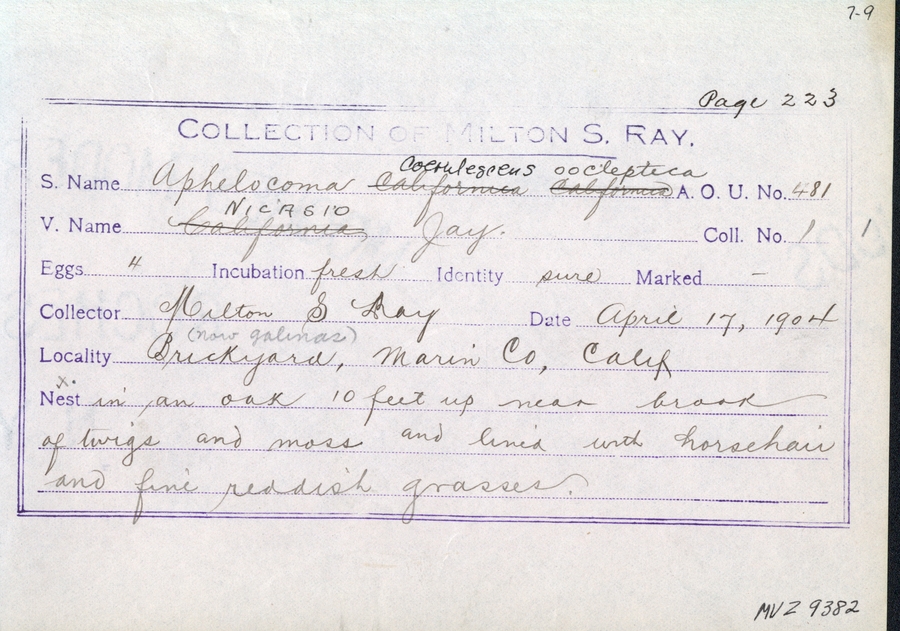 7-9
Page 223
COLLECTION OF MILTON S. RAY.
coerulescens oocleptica
S. Name Aphelocoma Californica Californica A. O. U. No. 481
NICASIO
V. Name California Jay. Coll. No. 1 1
Eggs 4 Incubation fresh Identity sure Marked —
Collector Milton S Ray Date April 17, 1904
(now galinas)
Locality Brickyard, Marin Co, Calif
x.
Nest in an oak 10 feet up near brook
of twigs and moss and lined with horsehair
and fine reddish grasses.
MVZ 9382